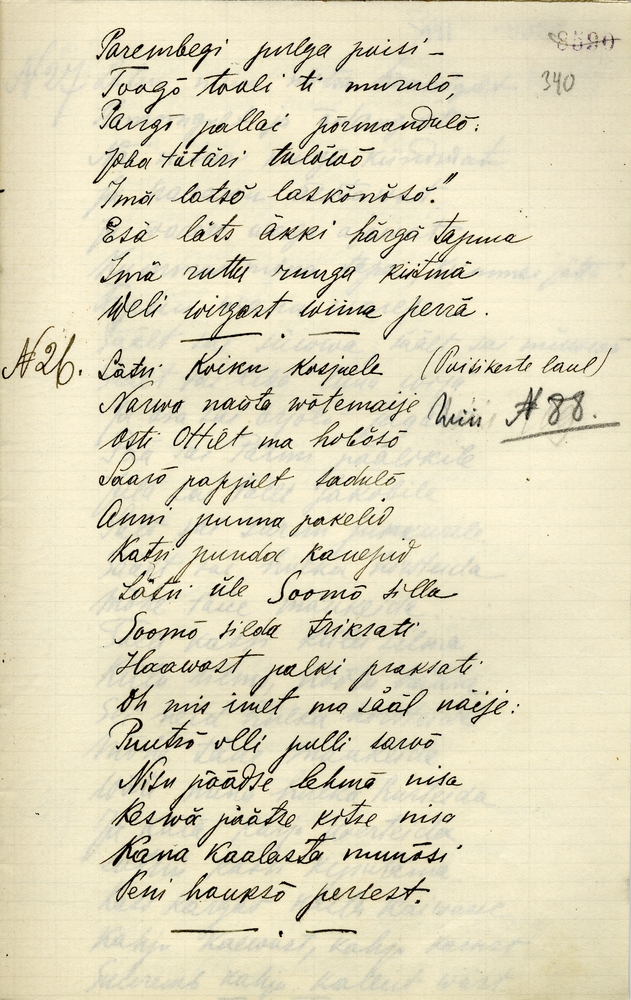 8590
340
Parembegi pulga poisi –
Toogõ tooli ti murulõ,
Pangõ pallai põrmandulõ:
Joba tätäri tulõwõ
Imä latsõ laskõnõsõ."
Esä läts äkki härgä tapma
Imä ruttu ruuga kiitmä
Weli wirgast wiina perrä.
N 26. Lätsi Koiku kosjuele (Poisikeste laul)
Narwa naista wõtemaije Wiis N 88.
Osti Ottilt ma hobõsõ
Saarõ papjult sadulõ
Anni punna pakelid
Katri punda kanepid
Lätsi üle Soomõ silla
Soomõ silda triksati
Haawast palki praksati
Oh mis imet ma sääl näije:
Puutsõ olli pulli sarwõ
Nisu päädse lehmä nisa
Keswä päätse kitse nisa
Kana kaalasta munõsi
Peni hauksõ persest.